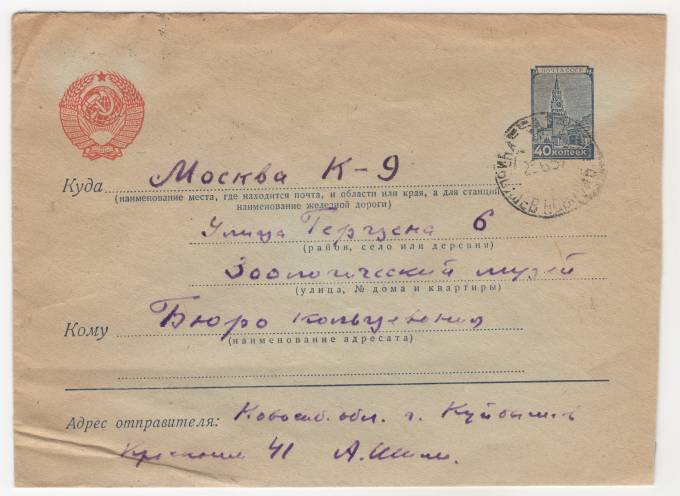 ПОЧТА СССР
40 КОПЕЕК
Куда Москва К-9
(наименование места, где находится почта, и области или края, а для станций
наименование железной дороги)
Улица Герцена 6
(район, село или деревня)
Зоологический музей
(улица, № дома и квартиры)
Кому Бюро кольцевания
(наименование адресата)
Адрес отправителя: Новосиб. обл. г. Куйбышев
41 А.